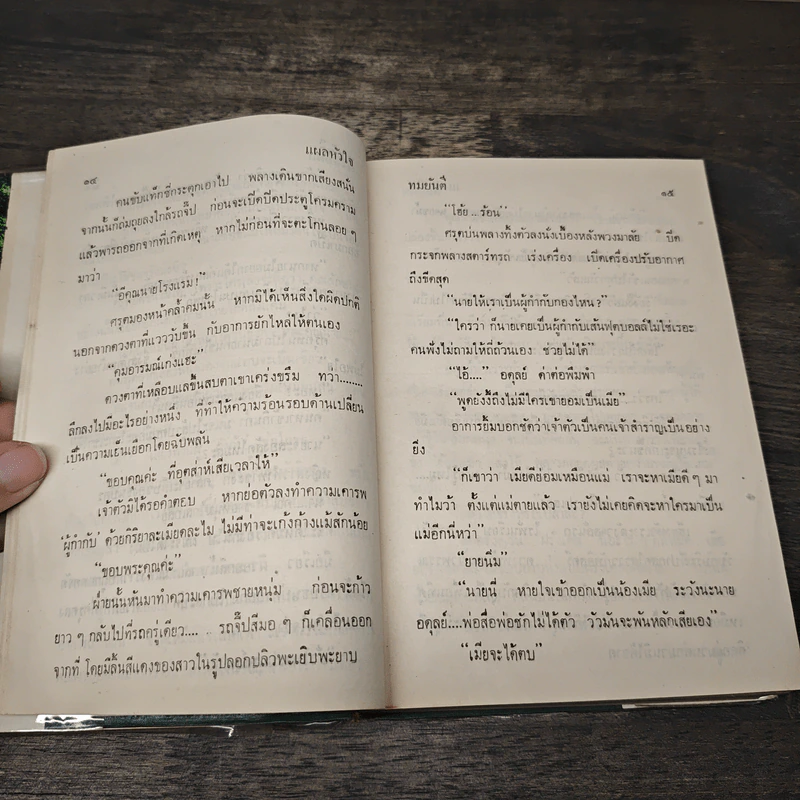 ๑๔
แผลหัวใจ
คนขับแท็กซี่กระตุกเอาไป พลางเดินขากเสียงสนั่น
จากนั้นก็ถ่มถุยลงใกล้รถจี๊ป ก่อนจะเปิดปิดประตูโครมคราม
แล้วพารถออกจากที่เกิดเหตุ หากไม่ก่อนที่จะตะโกนลอย ๆ
มาว่า
“อีคุณนายโรงแรม!”
ศรุตมองหน้าคล้ำคมนั้น หากมิได้เห็นสิ่งใดผิดปกติ
นอกจากดวงตาที่แวววับขึ้น กับอาการยักไหล่ให้ตนเอง
“คุมอารมณ์เก่งแฮะ”
ดวงตาที่เหลือบแลขึ้นสบตาเขาเคร่งขรึม ทว่า........
ลึกลงไปมีอะไรอย่างหนึ่ง ที่ทำให้ความร้อนรอบด้านเปลี่ยน
เป็นความเย็นเยือกโดยฉับพลัน
“ขอบคุณค่ะ ที่อุตส่าห์เสียเวลาให้”
เจ้าตัวมิได้รอคำตอบ หากย่อตัวลงทำความเคารพ
‘ผู้กำกับ’ ด้วยกิริยาละเมียดละไม ไม่มีท่าจะเก้งก้างแม้สักน้อย
“ขอบพระคุณค่ะ”
ฝ่ายนั้นหันมาทำความเคารพชายหนุ่ม ก่อนจะก้าว
ยาว ๆ กลับไปที่รถครู่เดียว.... รถจี๊ปสีมอ ๆ ก็เคลื่อนออก
จากที่ โดยมีลิ้นสีแดงของสาวในรูปลอกปลิวพะเยิบพะยาบ
ทมยันตี
๑๕
“โฮ้ย...ร้อน”
ศรุตบ่นพลางทิ้งตัวลงนั่งเบื้องหลังพวงมาลัย ปิด
กระจกพลางสตาร์ทรถ เร่งเครื่อง เปิดเครื่องปรับอากาศ
ถึงขีดสุด
“นายให้เราเป็นผู้กำกับกองไหน?”
“ใครว่า ก็นายเคยเป็นผู้กำกับเส้นฟุตบอลล์ไม่ใช่เรอะ
คนฟังไม่ถามให้ถี่ถ้วนเอง ช่วยไม่ได้”
“ไอ้....” อดุลย์ ด่าต่อพึมพำ
“พูดยังงี้ถึงไม่มีใครเขายอมเป็นเมีย”
อาการยิ้มบอกชัดว่าเจ้าตัวเป็นคนเจ้าสำราญเป็นอย่าง
ยิ่ง
“ก็เขาว่า เมียดีย่อมเหมือนแม่ เราจะหาเมียดี ๆ มา
ทำไมว้า ตั้งแต่แม่ตายแล้ว เรายังไม่เคยคิดจะหาใครมาเป็น
แม่อีกนี่หว่า”
“ยายนิ่ม”
“นายนี่ หายใจเข้าออกเป็นน้องเมีย ระวังนะนาย
อดุลย์....พ่อสื่อพ่อชักไม่ได้ตัว วัวมันจะพันหลักเสียเอง”
“เมียจะได้ตบ”